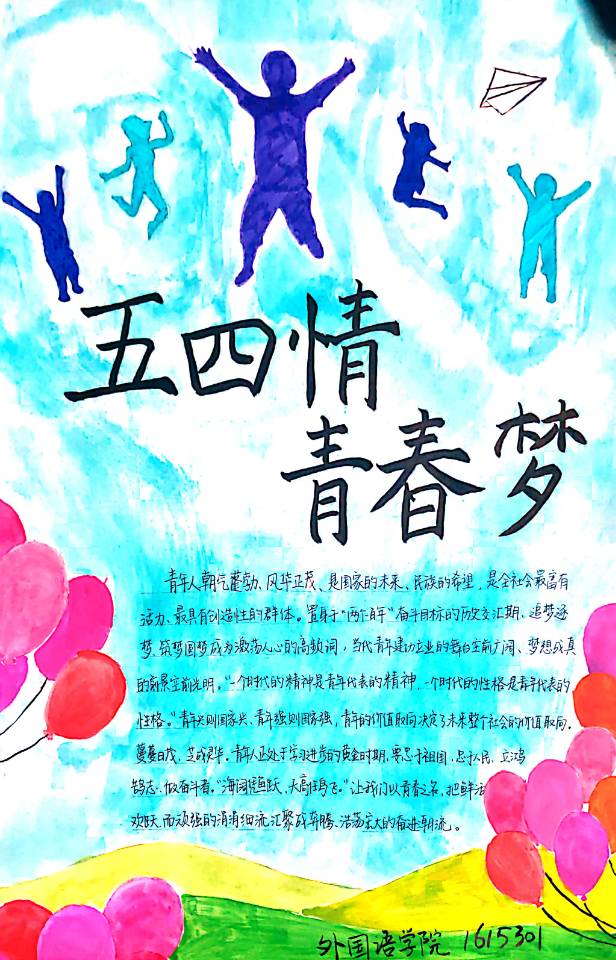 五四情
青春梦
青年人朝气蓬勃、风华正茂、是国家的未来、民族的希望,是全社会最富有
活力、最具有创造性的群体。置身于“两个百年”奋斗目标的历史交汇期、追梦逐
梦、筑梦圆梦成为激荡人心的高频词,当代青年建功立业的舞台空前广阔、梦想成真
的前景空前光明。“一个时代的精神是青年代表的精神,一个时代的性格是青年代表的
性格。”青年兴则国家兴、青年强则国家强,青年的价值取向决定了未来整个社会的价值取向。
青年人正处于学习进步的黄金时期,要忠于祖国,忠于人民,立鸿
鹄志、做奋斗者。“海阔凭鱼跃,天高任鸟飞。”让我们以青春之名,把鲜活
欢跃而顽强的涓涓细流汇聚成奔腾、浩荡宏大的奋进潮流。
外国语学院 1615301